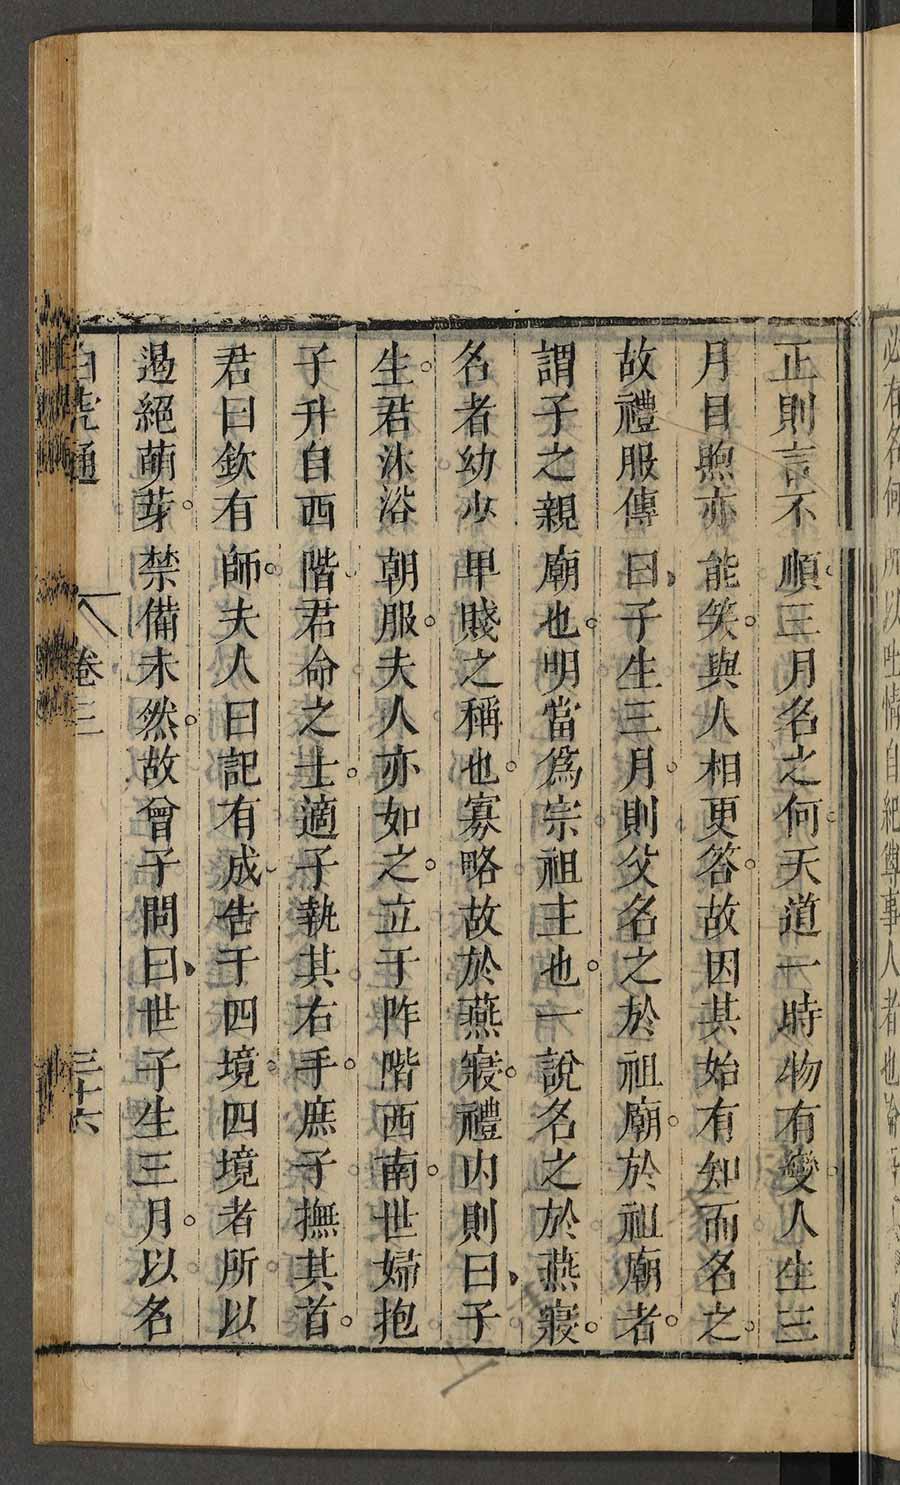 正則言不順三月名之何天道一時物有變人生三
月目煦亦能笑與人相更答故因其始有知而名之
故禮服傳曰子生三月則父名之於祖廟於祖廟者
謂子之親廟也明當爲宗祖主也一說名之於燕寢
名者幼少卑賤之稱也寡略故於燕寢禮内則曰子
生君沐浴朝服夫人亦如之立于阼階西南世婦抱
子升自西階君命之士適子執其右手庶子撫其首
君曰欽有師夫人曰記有成告于四境四境者所以
遏絕萌芽禁備未然故曾子問曰世子生三月以名
白虎通 卷三 三十六